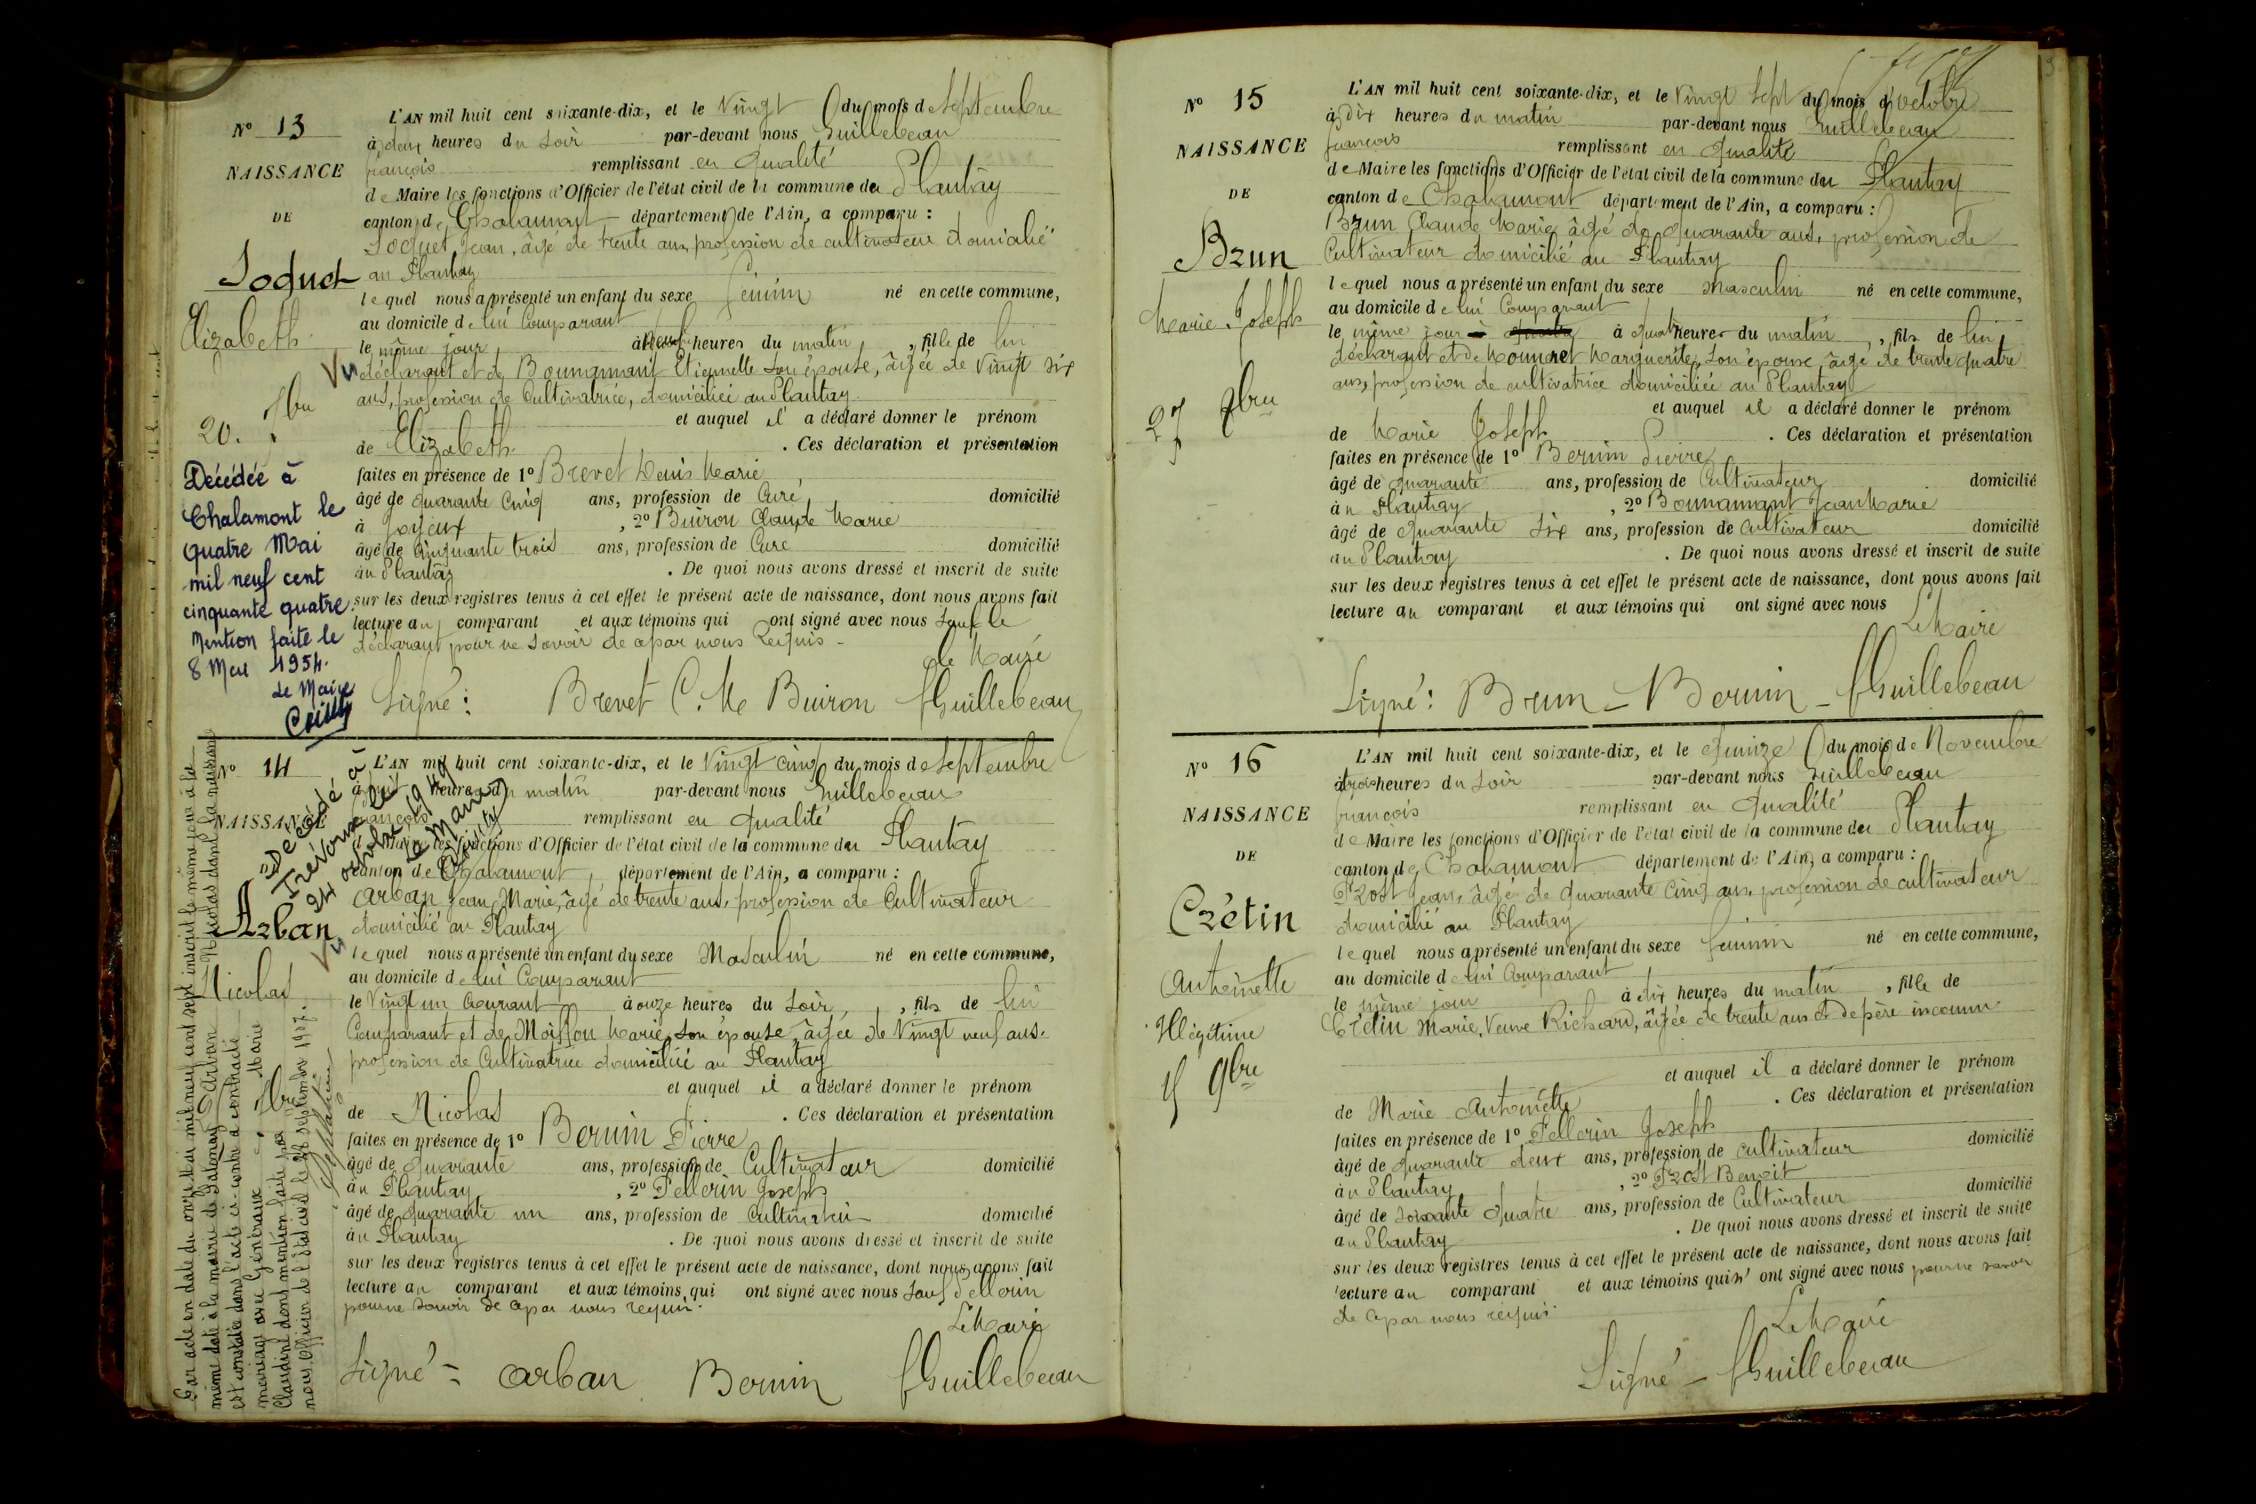 N° 13
NAISSANCE
DE
Joquet
Elizabeth
20. 7bre
Décédée à
Chalamont le
quatre Mai
mil neuf cent
cinquante quatre
Mention faite le
8 Mai 1954.
Le Maire
L'AN mil huit cent soixante-dix, et le Vingt du mois de Septembre
à deux heures du Soir par-devant nous Guillebeau
françois remplissant en qualité
de Maire les fonctions d'Officier de l'état civil de la commune du Plantay
canton de Chalamont département de l'Ain, a comparu :
Joquet Jean, âgé de trente ans, profession de cultivateur domicilié
au Plantay
lequel nous a présenté un enfant du sexe féminin né en cette commune,
au domicile de lui Comparant
le même jour à neuf heures du matin, fille de lui
déclarant et de Bonnamant Etiennette son épouse, âgée de Vingt six
ans, profession de Cultivatrice, domiciliée au Plantay
et auquel il a déclaré donner le prénom
de Elizabeth. . Ces déclaration et présentation
faites en présence de 1° Brevet Denis Marie
âgé de quarante Cinq ans, profession de Curé, domicilié
à Joyeux , 2° Buiron Claude Marie
âgé de Cinquante trois ans, profession de Curé domicilié
au Plantay . De quoi nous avons dressé et inscrit de suite
sur les deux registres tenus à cet effet le présent acte de naissance, dont nous avons fait
lecture au comparant et aux témoins qui ont signé avec nous Sauf le
déclarant pour ne savoir de ce par nous requis -
Le Maire
Signé : Brevet C. M. Buiron f Guillebeau
N° 14
NAISSANCE
Arban
Nicolas
Vu
7bre
Décédé à
Trévoux le
24 octobre 1949
Le Maire
Par acte en date du onze Mai mil neuf cent sept inscrit le même jour à la
même date à la mairie de Salonay Arban Nicolas dont la naissance
est constatée dans l'acte ci-contre a contracté
mariage avec Généraux Marie
Claudine dont mention faite par
nous Officier de l'état civil le 28 septembre 1907.
L'AN mil huit cent soixante-dix, et le Vingt cinq du mois de Septembre
à huit heures du matin par-devant nous Guillebeau
françois remplissant en qualité
de Maire les fonctions d'Officier de l'état civil de la commune du Plantay
canton de Chalamont, département de l'Ain, a comparu :
Arban Jean Marie, âgé de trente ans, profession de Cultivateur
domicilié au Plantay
lequel nous a présenté un enfant du sexe Masculin né en cette commune,
au domicile de lui Comparant
le Vingt un Courant à onze heures du Soir, fils de lui
Comparant et de Moisson Marie, son épouse, âgée de Vingt neuf ans.
profession de Cultivatrice domiciliée au Plantay
et auquel il a déclaré donner le prénom
de Nicolas . Ces déclaration et présentation
faites en présence de 1° Bernin Pierre
âgé de quarante ans, profession de Cultivateur domicilié
au Plantay , 2° Pellerin Joseph
âgé de quarante un ans, profession de Cultivateur domicilié
au Plantay . De quoi nous avons dressé et inscrit de suite
sur les deux registres tenus à cet effet le présent acte de naissance, dont nous avons fait
lecture au comparant et aux témoins qui ont signé avec nous Sauf Pellerin
pour ne savoir de ce par nous requis.
Le Maire
Signé = Arban Bernin f Guillebeau
N° 15
NAISSANCE
DE
Brun
Marie Joseph
27 8bre
L'AN mil huit cent soixante-dix, et le Vingt Sept du mois d'octobre
à dix heures du matin par-devant nous Guillebeau
françois remplissant en qualité
de Maire les fonctions d'Officier de l'état civil de la commune du Plantay
canton de Chalamont département de l'Ain, a comparu :
Brun Claude Marie âgé de quarante ans, profession de
Cultivateur domicilié au Plantay
lequel nous a présenté un enfant du sexe masculin né en cette commune,
au domicile de lui Comparant
le même jour à quatre heures du matin, fils de lui
déclarant et de Mounret Marguerite, son épouse, âgée de trente quatre
ans, profession de cultivatrice domiciliée au Plantay
et auquel il a déclaré donner le prénom
de Marie Joseph . Ces déclaration et présentation
faites en présence de 1° Bernin Pierre
âgé de quarante ans, profession de Cultivateur domicilié
au Plantay , 2° Bonnamant Jean Marie
âgé de quarante six ans, profession de Cultivateur domicilié
au Plantay . De quoi nous avons dressé et inscrit de suite
sur les deux registres tenus à cet effet le présent acte de naissance, dont nous avons fait
lecture au comparant et aux témoins qui ont signé avec nous
Le Maire
Signé : Brun - Bernin - f Guillebeau
N° 16
NAISSANCE
DE
Crétin
Antoinette
Illégitime
15 9bre
L'AN mil huit cent soixante-dix, et le quinze du mois de Novembre
à trois heures du Soir par-devant nous Guillebeau
françois remplissant en qualité
de Maire les fonctions d'Officier de l'état civil de la commune du Plantay
canton de Chalamont département de l'Ain, a comparu :
Prost Jean, âgé de quarante Cinq ans, profession de cultivateur
domicilié au Plantay
lequel nous a présenté un enfant du sexe féminin né en cette commune,
au domicile de lui Comparant
le même jour à dix heures du matin, fille de
Crétin Marie, Veuve Richard, âgée de trente ans et de père inconnu.
et auquel il a déclaré donner le prénom
de Marie Antoinette . Ces déclaration et présentation
faites en présence de 1° Pellerin Joseph
âgé de quarante deux ans, profession de cultivateur domicilié
au Plantay , 2° Prost Benoit
âgé de soixante quatre ans, profession de Cultivateur domicilié
au Plantay . De quoi nous avons dressé et inscrit de suite
sur les deux registres tenus à cet effet le présent acte de naissance, dont nous avons fait
lecture au comparant et aux témoins qui n'ont signé avec nous pour ne savoir
de ce par nous requis.
Le Maire
Signé - f Guillebeau